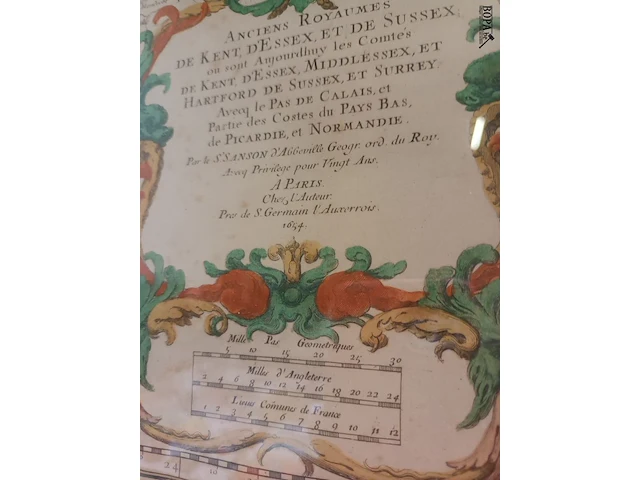 ANCIENS ROYAUMES
DE KENT, D'ESSEX, ET DE SUSSEX,
ou sont Aujourdhuy les Comtés
DE KENT, D'ESSEX, MIDDLESSEX, ET
HARTFORD DE SUSSEX, ET SURREY.
Avecq le PAS DE CALAIS, et
Partie des Costes du PAYS BAS,
de PICARDIE, et NORMANDIE.
Par le Sr SANSON d'Abbeville Geogr. ord. du Roy.
Avecq Privilege pour Vingt Ans.
A PARIS.
Chez l'Auteur.
Pres de St. Germain l'Auxerrois.
1654.
Mille Pas Geometriques
5 10 15 20 25 30
Milles d'Angleterre
2 4 6 8 10 12 14 16 18 20 22 24
Lieues Comunes de France
1 2 3 4 5 6 7 8 9 10 11 12
24
BOPA